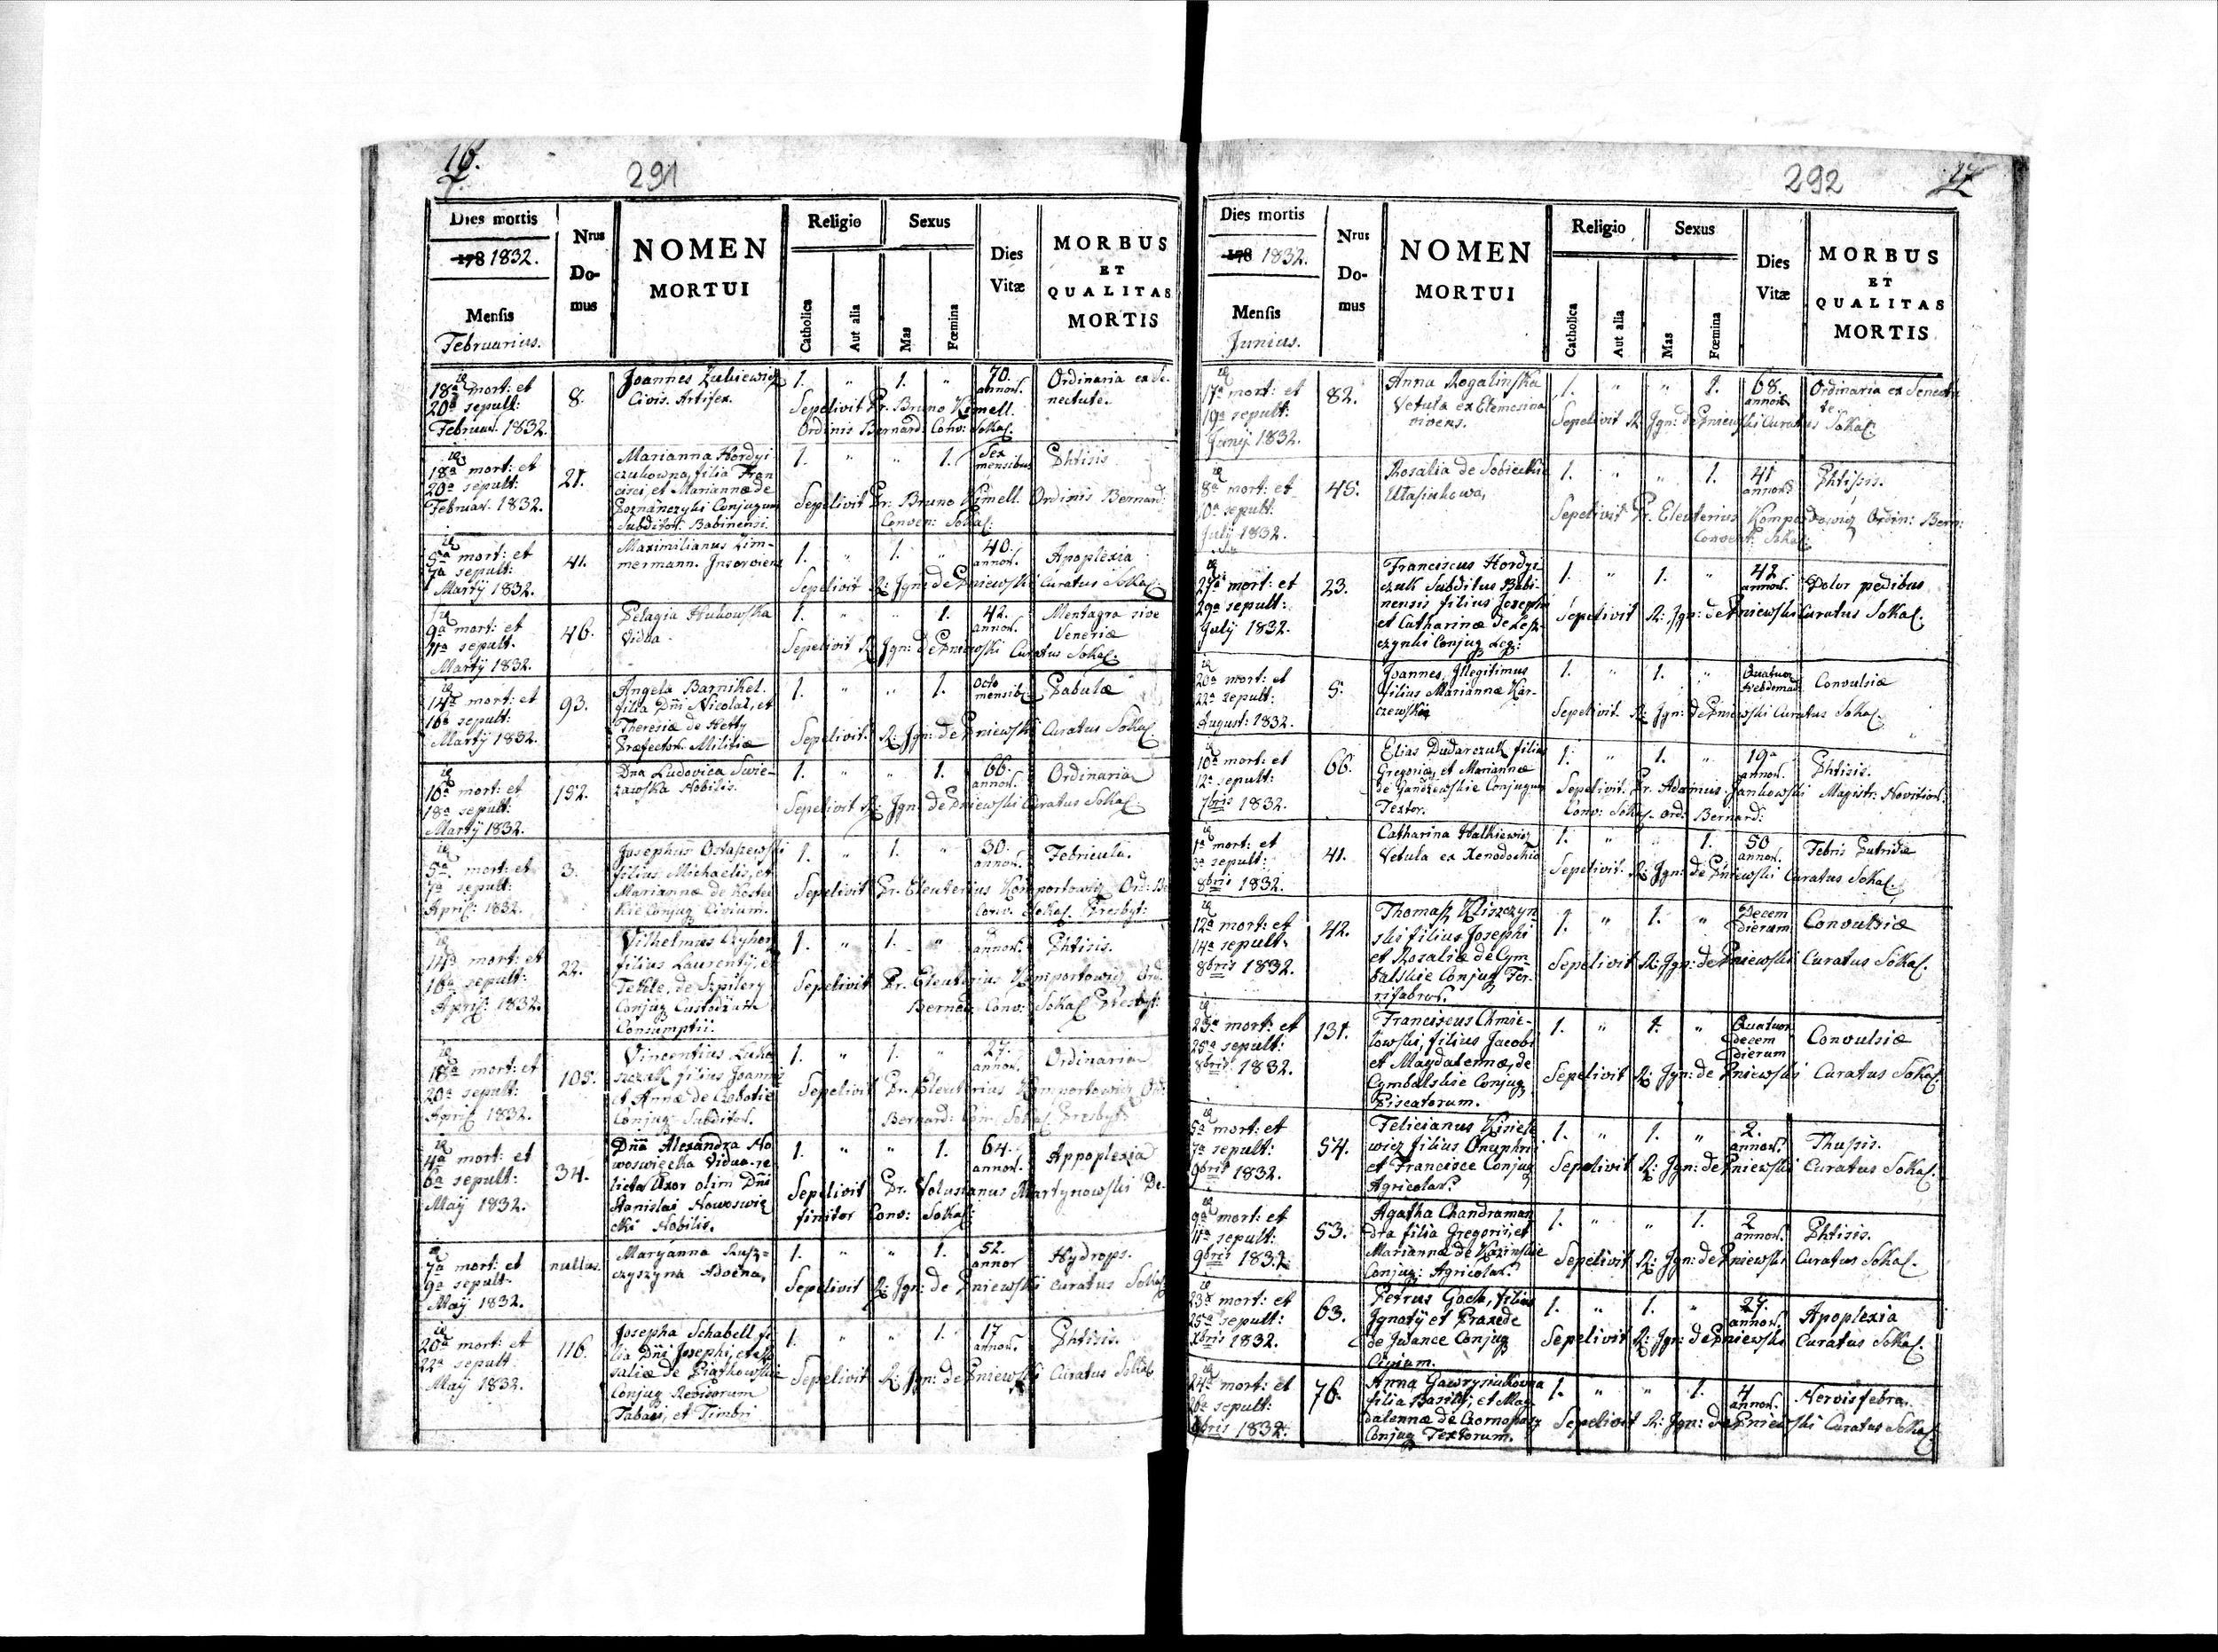 16.
291
Dies mortis
178 1832.
Mensis
Februarius.
Nrus
Do-
mus
NOMEN
MORTUI
Religio
Catholica
Aut alia
Sexus
Mas
Fœmina
Dies
Vitæ
MORBUS
ET
QUALITAS
MORTIS
18a mort: et
20a sepult:
Februar. 1832.
8.
Joannes Zukiewicz
Civis. Artifex.
1. " 1. "
70.
annor.
Ordinaria ex Se-
nectute.
Sepelivit Pr. Bruno Kimell.
Ordinis Bernard: Conv: Sokal.
18a mort: et
20a sepult:
Februar. 1832.
21.
Marianna Hordyi
czukowna, filia Fran
cisci, et Mariannæ de
Poznanczyki Conjugum
Subditor. Babinensi.
1. " " 1.
Sex
mensibus
Phtisis
Sepelivit Pr. Bruno Kimell. Ordinis Bernard:
Conven: Sokal:
5a mort: et
7a sepult:
Martÿ 1832.
41.
Maximilianus Zim-
mermann. Inserviens
1. " 1. "
40.
annor.
Apoplexia
Sepelivit R: Jgn: de Pniewski Curatus Sokal.
9a mort: et
11a sepult.
Martÿ 1832.
46.
Pelagia Hukowska
Vidua.
1. " " 1.
42.
annor.
Mentagra sive
Veneriæ
Sepelivit R: Jgn: de Pniewski Curatus Sokal.
14a mort: et
16a sepult:
Martÿ 1832.
93.
Angela Barnikel.
filia Dni Nicolai, et
Theresiæ de Hetty
Præfector. Militiæ
1. " " 1.
Octo
mensib.
Pabulæ
Sepelivit. R: Jgn: de Pniewski Curatus Sokal.
16a mort: et
18a sepult:
Martÿ 1832.
152.
Dna Ludovica Swie-
zawska Nobilis.
1. " " 1.
66.
annor.
Ordinaria
Sepelivit R: Jgn: de Pniewski Curatus Sokal.
5a. mort: et
7a sepult:
April: 1832.
3.
Josephus Ostaszewski
filius Michaelis, et
Mariannæ de Kostec
kie Conjug Civium.
1. " 1. "
30.
annor.
Febricula.
Sepelivit Pr. Eleuterius Komportowicz Ord: Be
Conv. Sokal. Presbyt:
14a mort: et
16a sepult:
April: 1832.
22.
Vilhelmus
filius Laurentÿ, et
Tekle, de Szpilery
Conjug Custodzum
Consumptii.
1. " 1. "
annor.
Phtisis.
Sepelivit Pr. Eleuterius Komportowicz Ord.
Bernard: Conv: Sokal Presbyt:
18a mort: et
20a sepult:
April 1832.
105.
Vincentius Luka
szczuk filius Joannis
et Annæ de
Conjug. Subditor.
1. " 1. "
27.
annor.
Ordinaria
Sepelivit Pr. Eleuterius Komportowicz Ord:
Bernard: Con: Sokal Presbyt:
4a mort: et
6a sepult:
Maÿ 1832.
34.
Dna Alexandra No
woswiecka Vidua re
licta Uxor olim Dni
Stanislai Nowoswie
cki Nobilis.
1. " " 1.
64.
annor.
Appoplexia
Sepelivit Pr. Volusianus Martynowski De-
finitor Conv: Sokal:
7a mort: et
9a sepult.
Maÿ 1832.
nullus.
Maryanna Rusz-
czyszyna Advena,
1. " " 1.
52.
annor
Hydrops.
Sepelivit R: Jgn: de Pniewski Curatus Sokal
20a mort: et
22a sepult:
Maÿ 1832.
116.
Josepha Schabell fi
lia Dni Josephi, et Ro
saliæ de Piatkowskie
Conjug Revisorum
Tabaci, et Timbri
1. " " 1.
17
annor.
Phtisis.
Sepelivit R: Jgn: de Pniewski Curatus Sokal
292
Dies mortis
178 1832.
Mensis
Junius.
Nrus
Do-
mus
NOMEN
MORTUI
Religio
Catholica
Aut alia
Sexus
Mas
Fœmina
Dies
Vitæ
MORBUS
ET
QUALITAS
MORTIS
17a mort: et
19a sepult:
Junÿ 1832.
82.
Anna Rogalinska
Vetula ex Elemosina
vivens.
1. " " 1.
68.
annor.
Ordinaria ex Senectu
te
Sepelivit R: Jgn: de Pniewski Curatus Sokal:
8a mort: et
10a sepult:
Julÿ 1832.
45.
Rosalia de Sobieckie
Utasiukowa,
1. " " 1.
41
annor.
Phtisis.
Sepelivit Pr. Eleuterius Komportowicz Ordin: Bern:
Convent: Sokal:
27a mort: et
29a sepult:
Julÿ 1832.
23.
Franciscus Hordyi
czuk Subditus Babi-
nensis filius Josephi
et Catharinæ de Lesz-
czynski Conjug Leg:
1. " 1. "
42
annor.
Dolor pedibus
Sepelivit R: Jgn: de Pniewski Curatus Sokal.
20a mort: et
22a sepult:
August: 1832.
5.
Joannes, Jllegitimus
filius Mariannæ Kar-
czewska
1. " 1. "
Quatuor
Hebdomad
Convulsiæ
Sepelivit. R: Jgn: de Pniewski Curatus Sokal.
10a mort: et
12a sepult:
7bris 1832.
66.
Elias Dudarczuk filius
Gregorii, et Mariannæ
de Gandzewskie Conjugum
Textor.
1. " 1. "
19a
annor.
Phtisis.
Sepelivit. Pr. Adamus Jankowski Magistr: Novitior:
Conv: Sokal. Ord: Bernard:
1a mort: et
3a sepult:
8bris 1832.
41.
Catharina Halkiewicz
Vetula ex Xenodochio
1. " " 1.
50
annor.
Febris Putridæ
Sepelivit. R: Jgn: de Pniewski Curatus Sokal.
12a mort: et
14a sepult.
8bris 1832.
42.
Thomas Kliszczyn
ski filius Josephi
et Rosaliæ de Cym
balskie Conjug Fer-
rifabror.
1. " 1. "
Decem
Dierum
Convulsiæ
Sepelivit R: Jgn: de Pniewski Curatus Sokal.
23a mort: et
25a sepult:
8bris 1832.
131.
Franciscus Chmie-
lowski, filius Jacobi
et Magdalennæ, de
Cymbalskie Conjug
Piscatorum.
1. " 1. "
Quatuor
decem
dierum
Convulsiæ
Sepelivit R: Jgn: de Pniewski Curatus Sokal.
5a mort: et
7a sepult:
9bris 1832.
54.
Felicianus Kisiele
wicz filius Onuphrii
et Francisce Conjug
Agricolar.
1. " 1. "
2.
annor.
Thussis.
Sepelivit R: Jgn: de Pniewski Curatus Sokal.
9a mort: et
11a sepult:
9bris 1832
53.
Agatha Chandraman
dra filia Gregorii, et
Mariannæ de Kazinskie
Conjug: Agricolar.
1. " " 1.
2
annor.
Phtisis.
Sepelivit R: Jgn: de Pniewski Curatus Sokal.
23a mort: et
25a sepult:
Xbris 1832.
63.
Petrus Goch, filius
Jgnatÿ et Praxede
de Jwance Conjug
Civium.
1. " 1. "
27.
annor.
Apoplexia
Sepelivit R: Jgn: de Pniewski Curatus Sokal.
24a mort: et
26a sepult:
Xbris 1832.
76.
Anna Gawrysiukowna
filia Basilÿ, et Mag
dalennæ de
Conjug Textorum.
1. " " 1.
4
annor.
Nervis febra.
Sepelivit R: Jgn: de Pniewski Curatus Sokal.